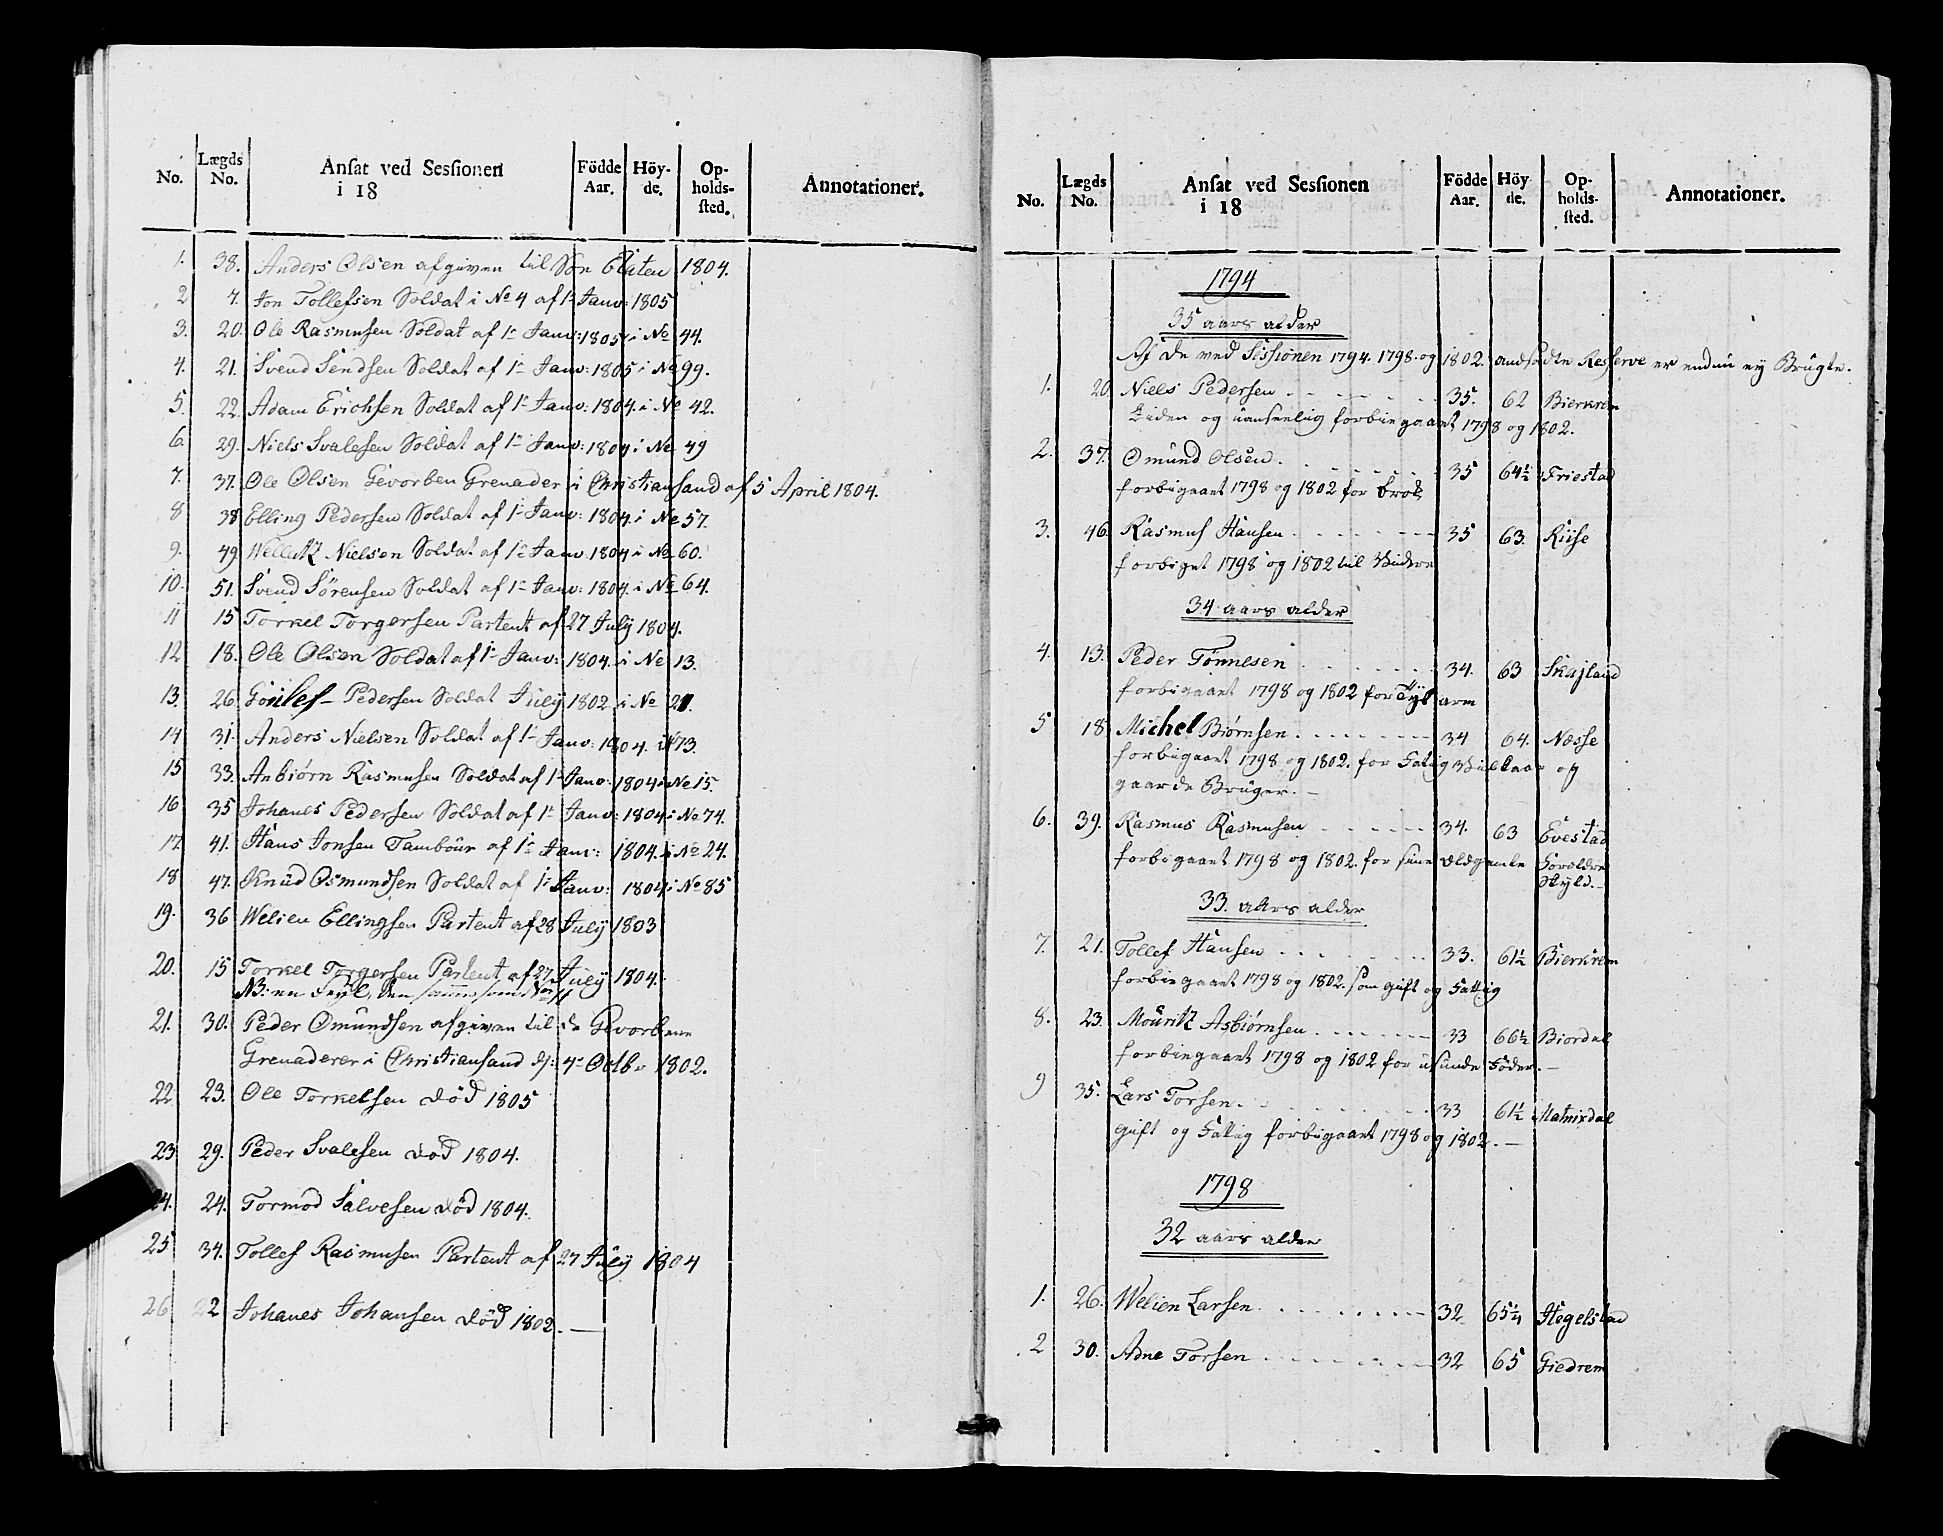 No. Lægds No. Ansat ved Sessionen i 18 Födde Aar. Höyde. Opholdssted. Annotationer.
1. 38. Anders Olsen afgiven til Søe Etaten 1804.
2 7. Jon Tollefsen Soldat i No 4 af 1te Janv: 1805
3. 20. Ole Rasmusen Soldat af 1te Janv: 1805 i No 44.
4. 21. Svend Sendsen Soldat af 1te Janv: 1805 i No 99.
5. 22. Adam Erichsen Soldat af 1te Janv: 1804. i No 42.
6. 29. Niels Svalesen Soldat af 1te Janv: 1804 i No 49
7. 37. Ole Olsen Gevorben Grenader i Christiansand af 5 April 1804.
8 38 Elling Pedersen Soldat af 1te Janv: 1804. i No 57.
9. 49 Wellutz Nielsen Soldat af 1te Janv: 1804 i No 60.
10. 51. Svend Sörensen Soldat af 1te Janv: 1804. i No 64.
11 15 Torkel Torgersen Partent af 27 July 1804.
12 18. Ole Olsen Soldat af 1te Janv: 1804. i No 13.
13. 26. Gunlef Pedersen Soldat July 1802 i No 21.
14 31. Anders Nielsen Soldat af 1te Janv: 1804. i No 73.
15 33. Anbiörn Rasmusen Soldat af 1te Janv: 1804 i No 15.
16 35 Johanes Pedersen Soldat af 1te Janv: 1804 i No 74.
17. 41. Hans Jonsen Tambour af 1te Janv: 1804. i No 24.
18 47. Knud Osmundsen Soldat af 1te Janv: 1804 i No 85
19. 36 Welien Ellingsen Partent af 28 July 1803
20. 15 Torkel Torgersen Partent af 27 July 1804.
NB: en Feyl, den samme som No 11
21. 30. Peder Omundsen afgiven til de Gevorbene
Grenaderer i Christiansand d: 4te Octbr 1802.
22 23. Ole Torkelsen död 1805
23 29. Peder Svalesen död 1804.
24. 24. Tormod Salvesen död 1804.
25 34. Tollef Rasmusen Partent af 27 July 1804
26 22 Johanes Johansen död 1802. —
No. Lægds No. Ansat ved Sessionen i 18 Födde Aar. Höyde. Opholdssted. Annotationer.
1794
35 aars alder
Af de ved Sessionen 1794. 1798. og 1802. andsadte Resserve er endnu ey Brugte.
1. 20 Niels Pedersen 35. 62 Bierkrem
Liden og uanseelig forbiegaaet 1798 og 1802.
2. 37. Omund Olsen 35 64½ Friestad
forbigaaet 1798 og 1802 for brok
3. 46. Rasmus Hansen 35 63. Riise
forbiget 1798 og 1802 til Videre
34 aars alder
4. 13. Peder Tönnesen 34. 63 Skajland
forbigaaet 1798 og 1802 for Feyl arm
5 18. Michel Biörnsen 34 64. Nesse
forbigaaet 1798 og 1802. for Fatig Vilkaar og
gaarde Bruger. —
6. 39. Rasmus Rasmusen 34. 63 Evestad
forbigaaet 1798 og 1802. for sine ældgamle Forældre
Skyld. —
33. aars alder
7. 21. Tollef Hansen 33. 61½ Bierkrem
forbiegaaet 1798 og 1802. som gift og Fattig
8. 23. Mouritz Asbiörnsen 33 66½ Biordal
forbiegaaet 1798 og 1802 for usunde Föder. —
9 35. Lars Torsen 33 61½ Matnisdal
gift og Fatig forbigaaet 1798 og 1802. —
1798
32 aars alder
1. 26. Welien Larsen 32 65¼ Hegelstad
2 30. Adne Torsen 32 65 Giedrem